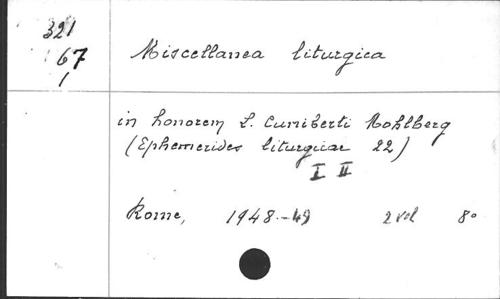 321
67
1
Miscellanea liturgica
in honorem L. Cuniberti Mohlberg
(Ephemerides liturgicae 22)
I II
Rome, 1948-49 2 vol 8°